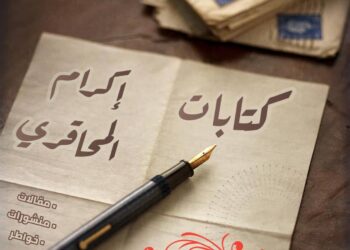 كتابات
إكرام
المحاقري
• مقالات
• منشورات
• خواطر